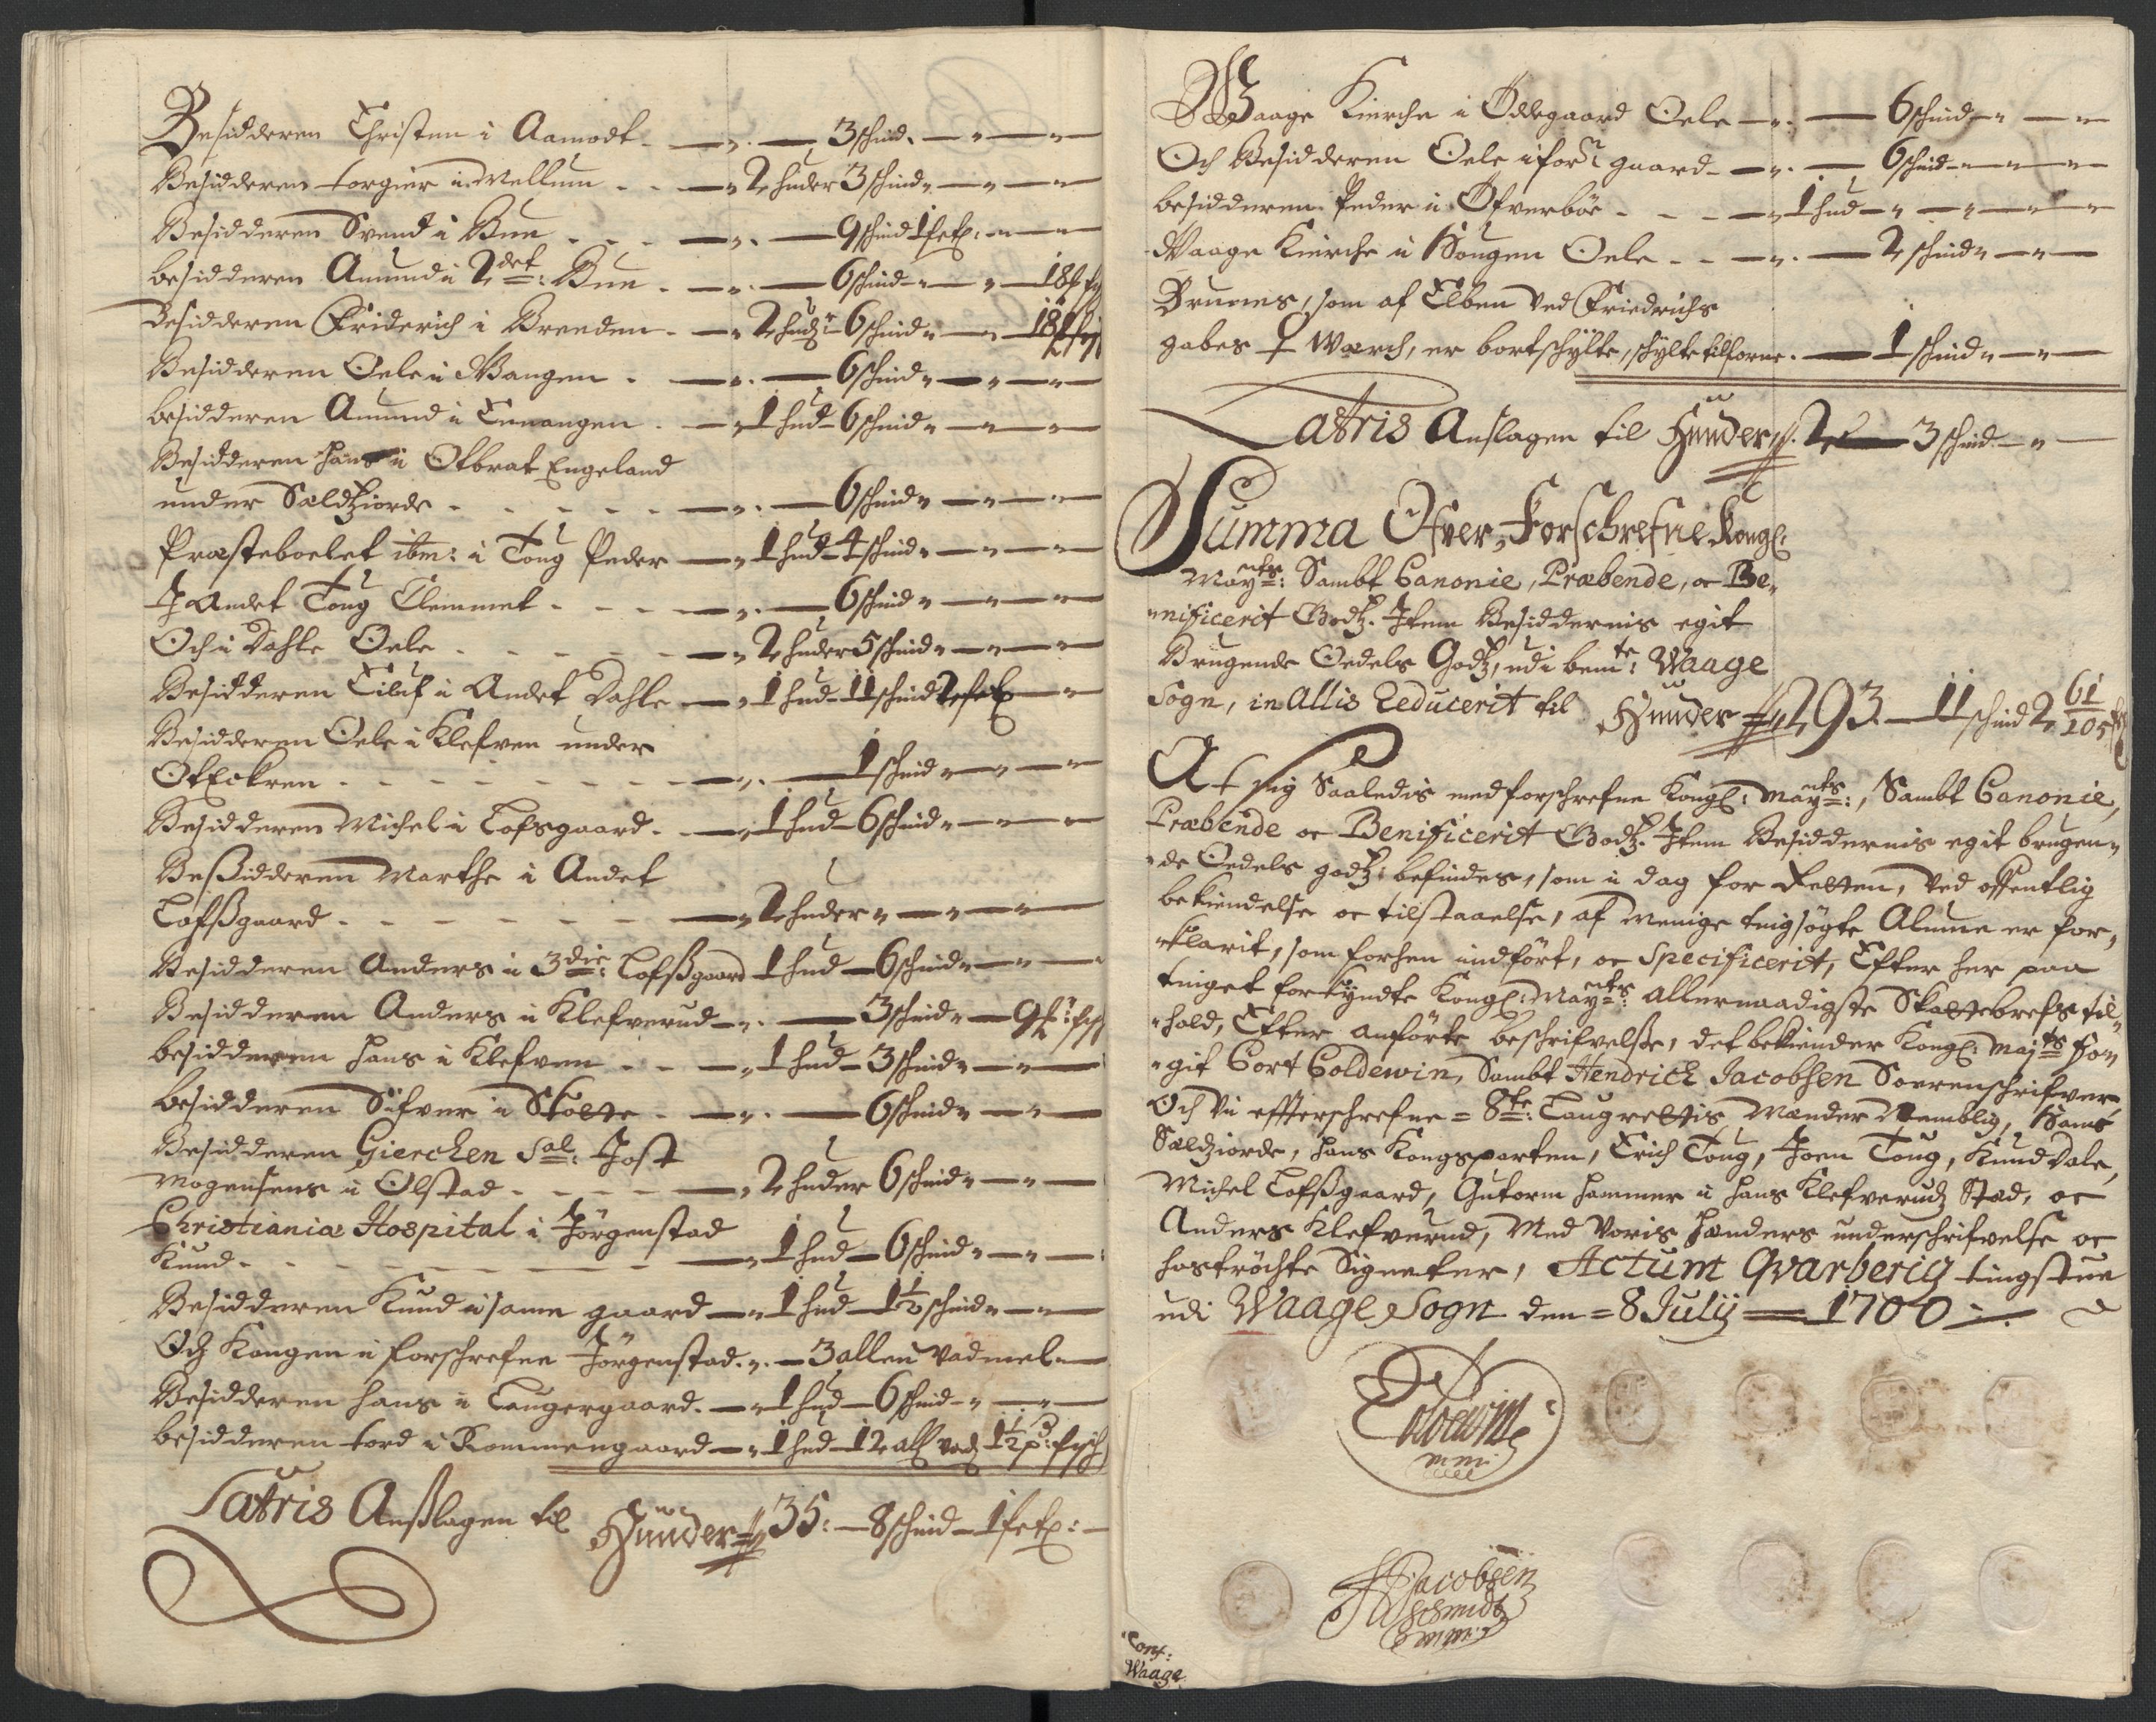 Besidderen Christen i Aamodt - 3 schind
Besidderen torgier i Mellum - 2 huder 3 schind
Besidderen Svend i Bue - 9 schind 1 sch:
besidderen Amund i 2det: Bue - 6 schind - 18
Besidderen Friderich i Breeden - 2 hud: 6 schind - 18
Besidderen Oele i Wangen - 6 schind
besidderen Amund i - 1 hud 6 schind
Besidderen Hans i Engeland
under Sældziorde - 6 schind
Præsteboelet ibm: i Toug Peder - 1 hud 4 schind
I Andet Toug Clemmet - 6 schind
Och i Dahle Oele - 2 huder 5 schind
Besidderen Eiluf i Andet Dahle - 1 hud 11 schind 2
Besidderen Oele i Klefven under
- 1 schind
Besidderen Michel i Lofsgaard - 1 hud 6 schind
Beßidderen Marthe i Andet
Lofßgaard - 2 huder
Besidderen Anders i 3die: Lofßgaard 1 hud 6 schind
Besidderen Anders i Klefverud - 3 schind - 9
besidderen Hans i Klefven - 1 hud 3 schind
besidderen Sifver i - 6 schind
Besidderen Gierchen Sal: Jost
Mogensens i Olstad - 2 huder 6 schind
Christiania Hospital i Jörgenstad
Knud - 1 hud 6 schind
Besidderen Knud i samme gaard - 1 hud 1½ schind
Och Kongen i forschrefne Jörgenstad - 3 allen vadmel
Besidderen Hans i Laugergaard - 1 hud 6 schind
besidderen tord i Rommengaard - 1 hud 12 all vad: 1½
Latris Anßlagen til Huuder 35: - 8 schind - 1
Waage Kierche i Ödegaard Oele - 6 schind
Och Besidderen Oele i forn: gaard - 6 schind
besidderen Peder i Öfverböe - 1 hud
Waage Kierche i Hougen Oele - 2 schind
Bruenes, som af Elben ved Friedrichs
gabes Værch, er bortschylte, schylte tilforne - 1 schind
Latris Anslagen til Huuder 2 - 3 schind
Summa Ofver Forschrefne Kongl:
Mayts: Sambt Canonie, Præbende, oc Be-
nificerit Godtz. Item Besiddernis egit
Brugende Oedels Godtz, udi bemte: Waage
Sogn, in Allis Reducerit til Huuder 293 - 11 schind 2 61/105
At sig Saaledis med forschrefne Kongl: Mayts:, Sambt Canonie,
Præbende oc Benificerit Godtz. Item Besiddernis egit brugen-
de Oedels godtz: befindes, som i dag for Retten, ved offentlig
bekiendelse oc tilstaaelse, af menige tingsögte Almue er for-
klarit, som forhen indfört, oc Specificerit, Efter her paa
tinget forkyndte Kongl: Mayts: allernaadigste Skattebrefs til-
hold, Efter anförte beschrifvelße, det bekiender Kongl: Majts Fo-
git Cort Coldewin, Sambt Hendrich Jacobsen Sorenschrifver,
Och vi effterschrefne 8te: Laugrettis Mænder Nemblig, Hans
Sældziorde, Hans Kongsparten, Erich Toug, Joen Toug, Knud Dale,
Michel Lofßgaard, Gutorm Hammer i Hans Klefveruds Stæd, oc
Anders Klefverud, Med Voris Hænders underschrifvelse oc
hoströchte Signeter, Actum Qvarberig tingstue
udi Waage Sogn den 8 Julij 1700
Coldewin
mm:
HJacobsen
Schmidt
mm:
Waage